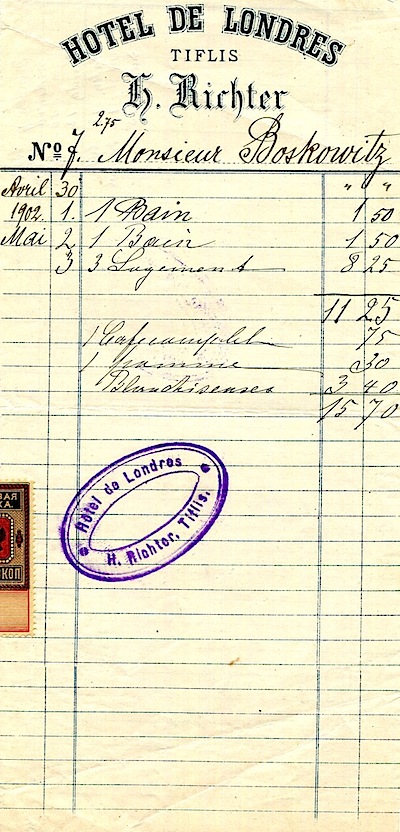 HOTEL DE LONDRES
TIFLIS
H. Richter
275
No 7. Monsieur Boskowitz
Avril 30 " "
1902. 1. 1 Bain 1 50
Mai 2 1 Bain 1 50
3 3 Logement 8 25
11 25
1 Café complet 75
1 30
Blanchisseuse 3 40
15 70
Hôtel de Londres
H. Richter, Tiflis.
ВАЯ
КА.
КОП